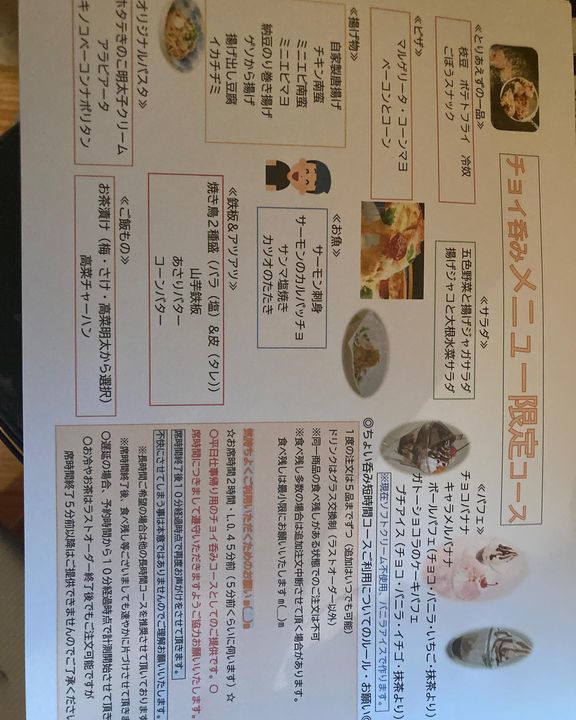 チョイ呑みメニュー限定コース
≪とりあえずの一品≫
枝豆 ポテトフライ 冷奴
ごぼうスナック
≪サラダ≫
五色野菜と揚げジャガサラダ
揚げジャコと大根水菜サラダ
≪パフェ≫
チョコバナナ
キャラメルバナナ
ボールパフェ(チョコ・バニラ・いちご・抹茶より)
ガトーショコラのケーキパフェ
プチアイス(チョコ・バニラ・イチゴ・抹茶より)
※現在ソフトクリーム不使用。バニラアイスで作ります。
≪ピザ≫
マルゲリータ・コーンマヨ
ベーコンとコーン
≪揚げ物≫
自家製唐揚げ
チキン南蛮
ミニエビ南蛮
ミニエビマヨ
納豆のり巻き揚げ
ゲソから揚げ
揚げ出し豆腐
イカチヂミ
≪お魚≫
サーモン刺身
サーモンのカルパッチョ
サンマ塩焼き
カツオのたたき
≪鉄板&アツアツ≫
焼き鳥2種盛(バラ(塩)&皮(タレ))
山芋鉄板
あさりバター
コーンバター
オリジナルパスタ≫
ホタテきのこ明太子クリーム
アラビアータ
キノコベーコンナポリタン
≪ご飯もの≫
お茶漬け(梅・さけ・高菜明太から選択)
高菜チャーハン
◎ちょい呑み短時間コースご利用についてのルール・お願い◎
1度の注文は5品まですつ(追加はいつでも可能)
ドリンクはグラス交換制(ラストオーダー以外)
※同一商品の食べ残しがある状態でのご注文は不可
※食べ残し多数の場合は追加注文中断させて頂く場合があります。
食べ残しは最小限にお願いいたしますm(__)m
気持ちよくご利用いただくためのお願いm(__)m
☆お席時間2時間・L.O.45分前(5分前くらいに伺います)☆
〇平日仕事帰り用のチョイ呑みコースとしてのご提供です。〇
席時間につきまして遵守いただきますようご協力お願いいたします。
席時間終了後10分経過時点で再度お声がけをさせて頂きます。
不快にさせてしまう事は本意ではありませんのでご理解お願いいたします。
※長時間ご希望の場合は他の長時間コースを推奨させて頂いております
※席時間終了後、食べ残し等ございましても速やかに片づけさせて頂きま
〇遅延の場合、予約時間から10分経過時点で計測開始させて頂き
〇お冷やお茶はラストオーダー終了後でもご注文可能ですが
席時間終了5分前以降はご提供できませんのでご了承ください